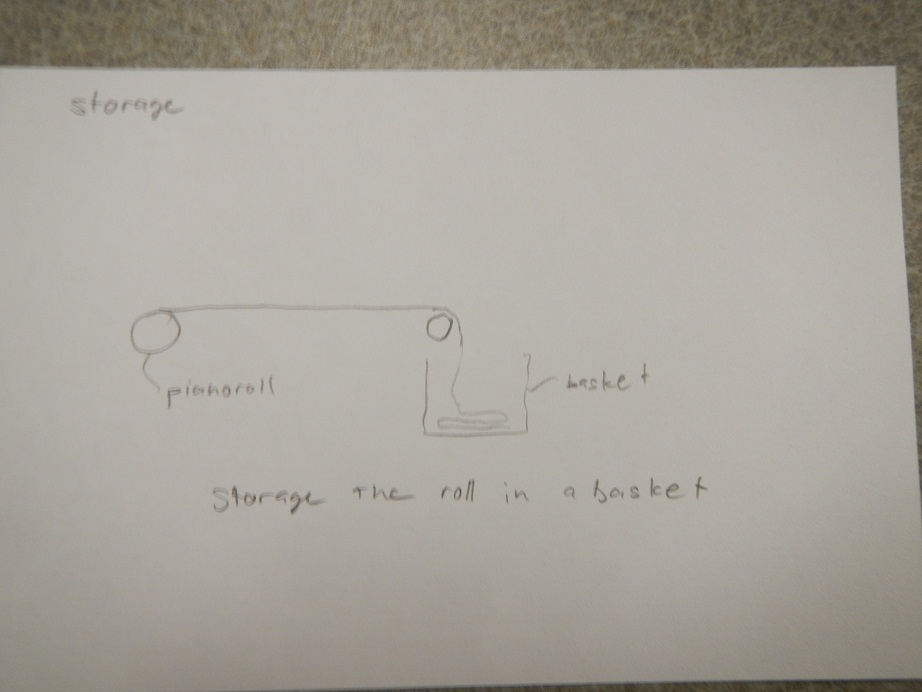 storage
pianoroll
basket
Storage the roll in a basket